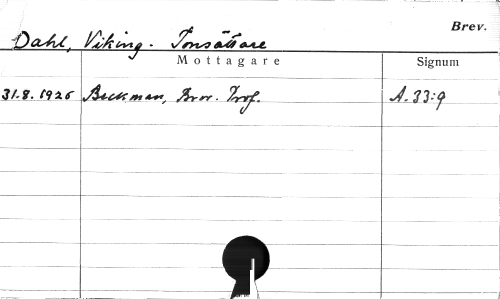 Brev.
Dahl, Viking. Tonsättare
Mottagare Signum
31.8.1926 Beckman, Bror. Prof. A.33:9